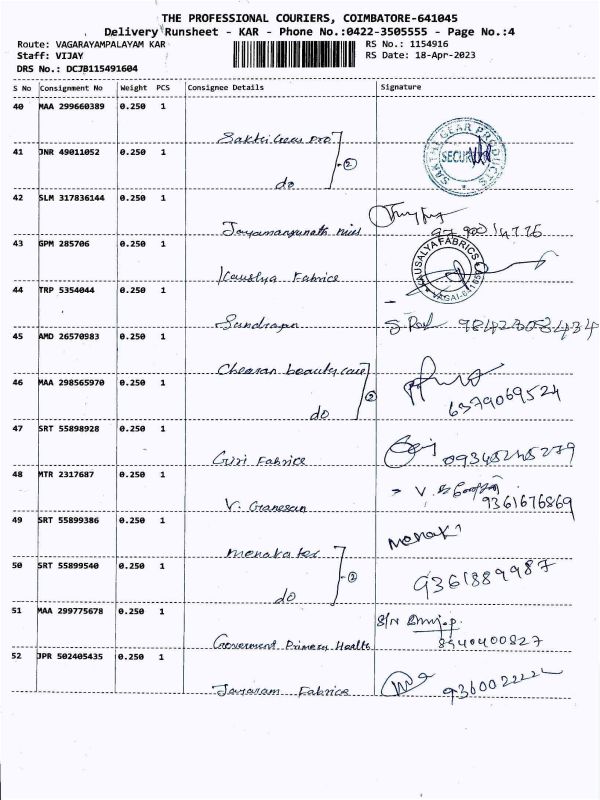 THE PROFESSIONAL COURIERS, COIMBATORE-641045
Delivery Runsheet - KAR - Phone No.:0422-3505555 - Page No.:4
Route: VAGARAYAMPALAYAM KAR RS No.: 1154916
Staff: VIJAY RS Date: 18-Apr-2023
DRS No.: DCJB115491604
S No Consignment No Weight PCS Consignee Details Signature
40 MAA 299660389 0.250 1
Sakthi Gear Pro
SAKTHI GEAR PRODUCTS
SECURITY
41 JNR 49011052 0.250 1
do 2
42 SLM 317836144 0.250 1
Jayamanjunath
43 GPM 285706 0.250 1
Kauslya Fabrice
KAUSALYA FABRICS
44 TRP 5354044 0.250 1
9842308434
45 AMD 26570983 0.250 1
Cheeran beauty care
46 MAA 298565970 0.250 1
do 2
6379069524
47 SRT 55898928 0.250 1
Giri Fabrice
09345245279
48 MTR 2317687 0.250 1
V. Ganesan
9361676869
49 SRT 55899386 0.250 1
menaka tex
menaka
50 SRT 55899540 0.250 1
do 2
9361889987
51 MAA 299775678 0.250 1
Goverment Primery Health
S/N
8940400827
52 JPR 502405435 0.250 1
Jayaram Fabrice